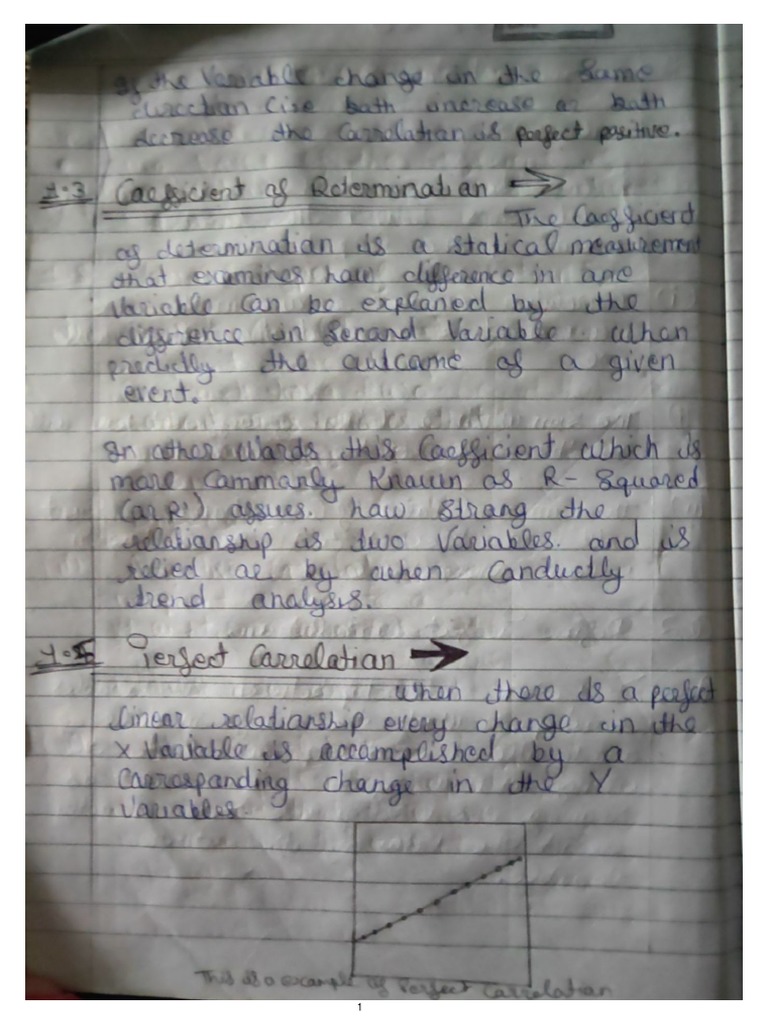 If the Variable change in the same
direction (i.e both increase or both
decrease the Correlation is perfect positive.
Coefficient of Determination
The Coefficient
of determination is a statical measurement
that examines how difference in one
Variable Can be explaned by the
difference in Second Variable when
predictly the outcome of a given
event.
In other Words this Coefficient which is
more Commonly Known as R- Squared
how Strong the
relationship is two Variables. and is
relied by when Conductly
trend analysis.
Perfect Correlation
when there is a perfect
linear relationship every change in the
x Variable is accomplished by a
Corresponding change in the Y
Variables
This is a example of Perfect Correlation
1